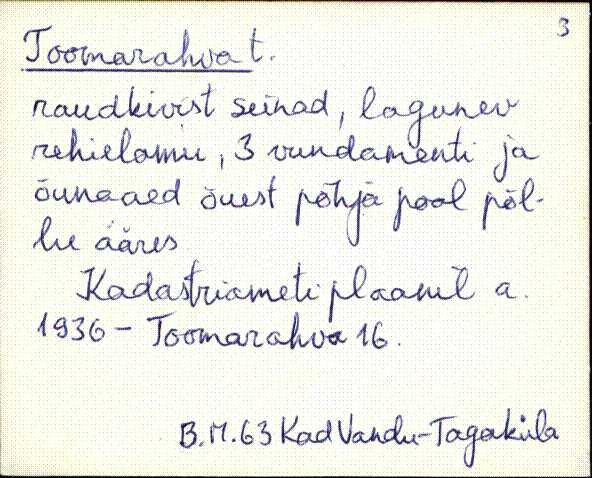 3
Toomarahva t.
raudkivist seinad, lagunev
rehielamu, 3 vundamenti ja
õunaaed õuest põhja pool põl-
lu ääres
Kadastriameti plaanil a.
1936 - Toomarahva 16.
B.M.63 Kad Vandu-Tagaküla